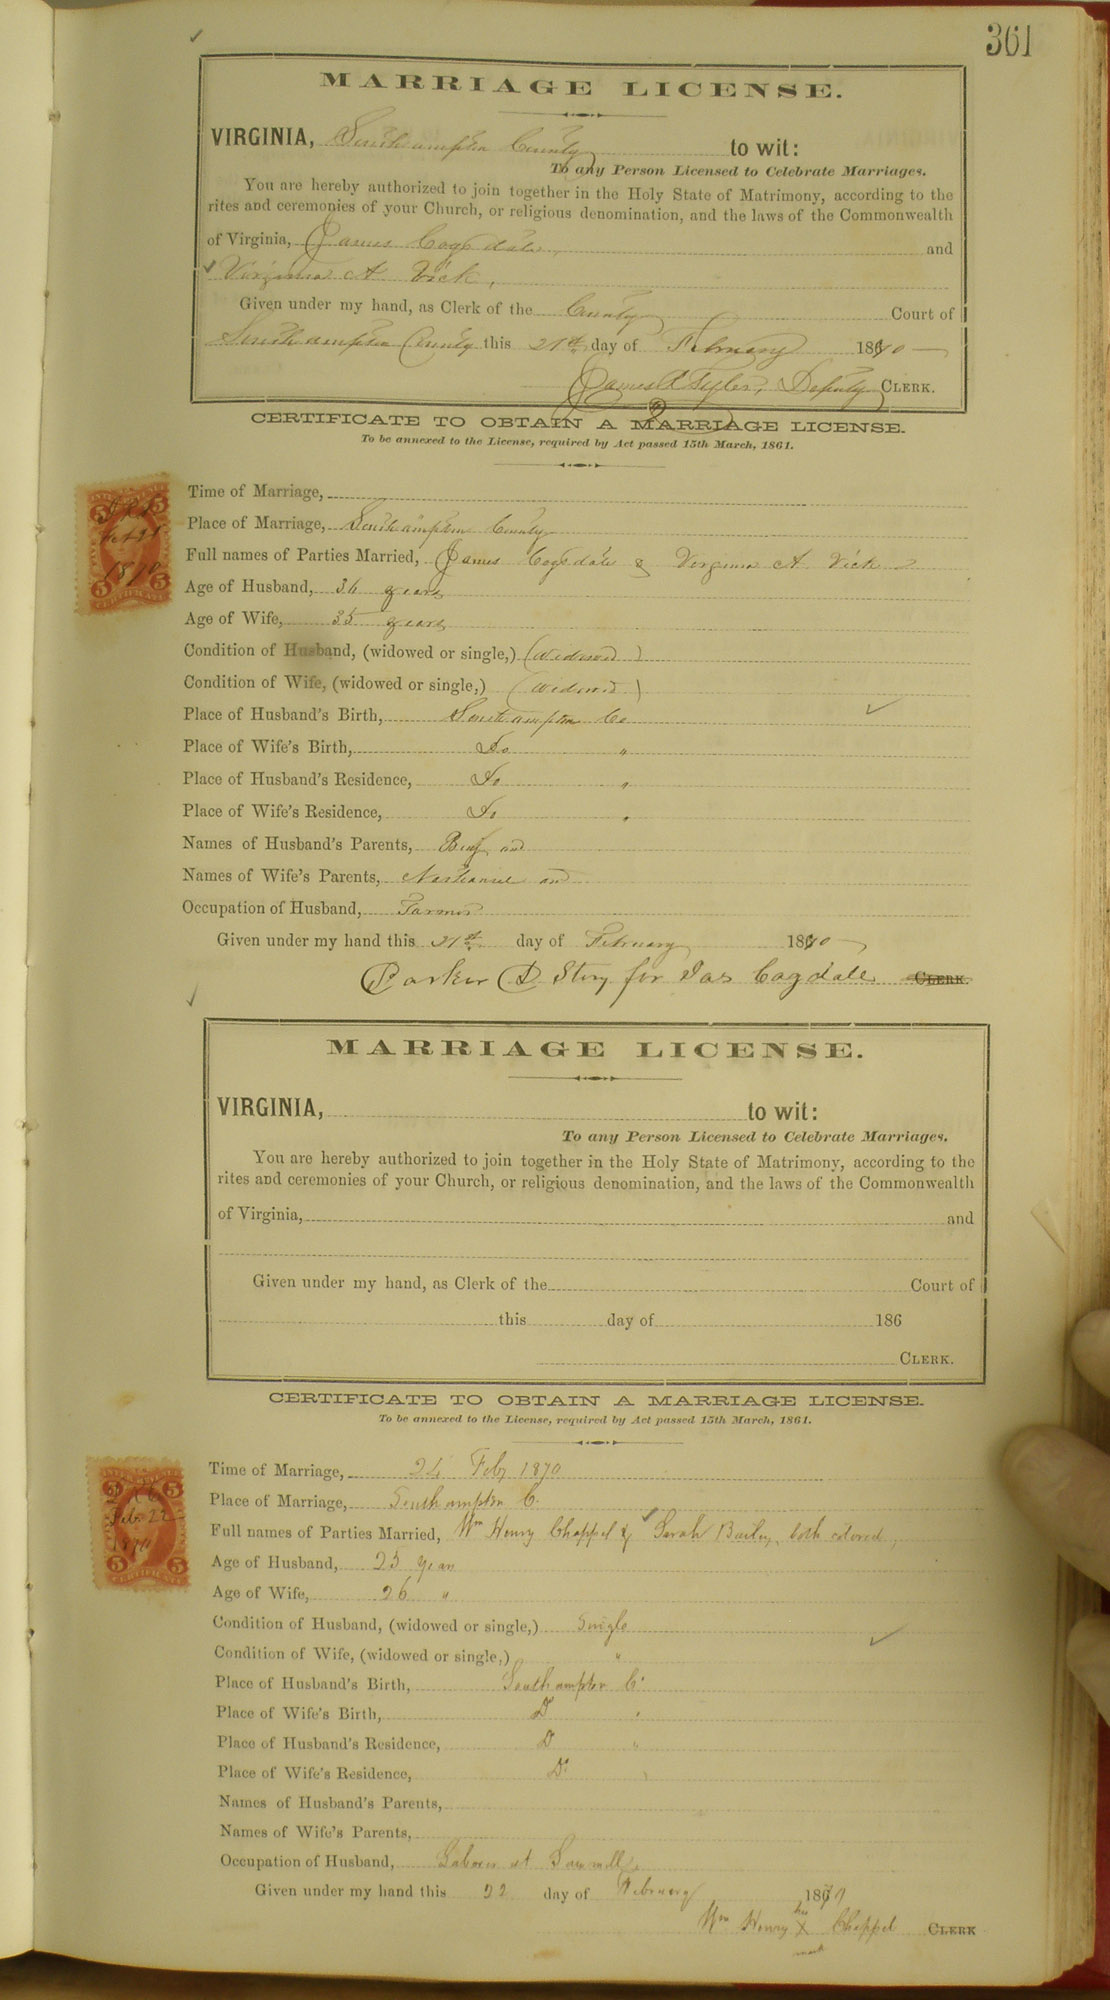 361
MARRIAGE LICENSE.
VIRGINIA, Southampton County to wit:
To any Person Licensed to Celebrate Marriages.
You are hereby authorized to join together in the Holy State of Matrimony, according to the
rites and ceremonies of your Church, or religious denomination, and the laws of the Commonwealth
of Virginia, James Cogsdale and
Virginia A Vick,
Given under my hand, as Clerk of the County Court of
Southampton County this 21st day of February 1870
James R Tyler, Deputy CLERK.
CERTIFICATE TO OBTAIN A MARRIAGE LICENSE.
To be annexed to the License, required by Act passed 15th March, 1861.
Time of Marriage,
Place of Marriage, Southampton County
Full names of Parties Married, James Cogsdale & Virginia A Vick
Age of Husband, 36 years
Age of Wife, 35 years
Condition of Husband, (widowed or single,) (Widowed)
Condition of Wife, (widowed or single,) (Widowed)
Place of Husband's Birth, Southampton Co
Place of Wife's Birth, Do "
Place of Husband's Residence, Do "
Place of Wife's Residence, Do "
Names of Husband's Parents, Benj and
Names of Wife's Parents, Nathaniel and
Occupation of Husband, Farmer
Given under my hand this 21st day of February 1870
Parker D Story for Jas Cogdale CLERK.
5 5
Feb 21
1870
5 5
CERTIFICATE
MARRIAGE LICENSE.
VIRGINIA, to wit:
To any Person Licensed to Celebrate Marriages.
You are hereby authorized to join together in the Holy State of Matrimony, according to the
rites and ceremonies of your Church, or religious denomination, and the laws of the Commonwealth
of Virginia, and
Given under my hand, as Clerk of the Court of
this day of 186
CLERK.
CERTIFICATE TO OBTAIN A MARRIAGE LICENSE.
To be annexed to the License, required by Act passed 15th March, 1861.
Time of Marriage, 24 Feby 1870
Place of Marriage, Southampton C.
Full names of Parties Married, Wm Henry Chappel & Sarah Bailey, both colored,
Age of Husband, 25 year
Age of Wife, 26 "
Condition of Husband, (widowed or single,) Single
Condition of Wife, (widowed or single,) "
Place of Husband's Birth, Southampton C.
Place of Wife's Birth, Do "
Place of Husband's Residence, Do "
Place of Wife's Residence, Do "
Names of Husband's Parents,
Names of Wife's Parents,
Occupation of Husband, Laborer at Sawmill
Given under my hand this 22 day of February 1870
Wm Henry his X mark Chappel CLERK
5 5
Feb. 22
1870
5 5
CERTIFICATE